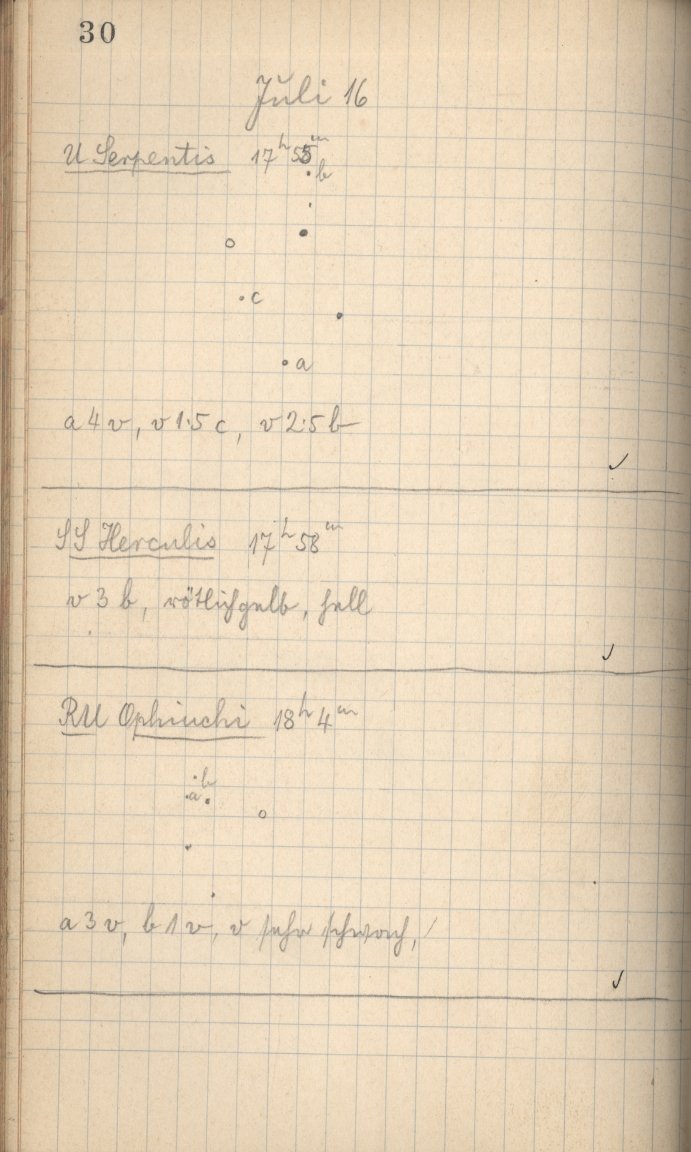 30
Juli 16
U Serpentis 17ʰ 55ᵐ
b
c
a
a 4 v, v 1·5 c, v 2·5 b
SS Herculis 17ʰ 58ᵐ
v 3 b, rötlichgelb, hell
RU Ophiuchi 18ʰ 4ᵐ
b
a
a 3 v, b 1 v, v sehr schwach, /